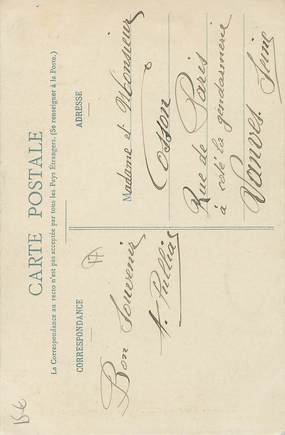 CARTE POSTALE
La Correspondance au recto n'est pas acceptée par tous les Pays Étrangers. (Se renseigner à la Poste.)
CORRESPONDANCE
ADRESSE
Bon Souvenir
17
Madame et Monsieur
Cosson
Rue de Paris
à coté la gendarmerie
Vanves. Seine